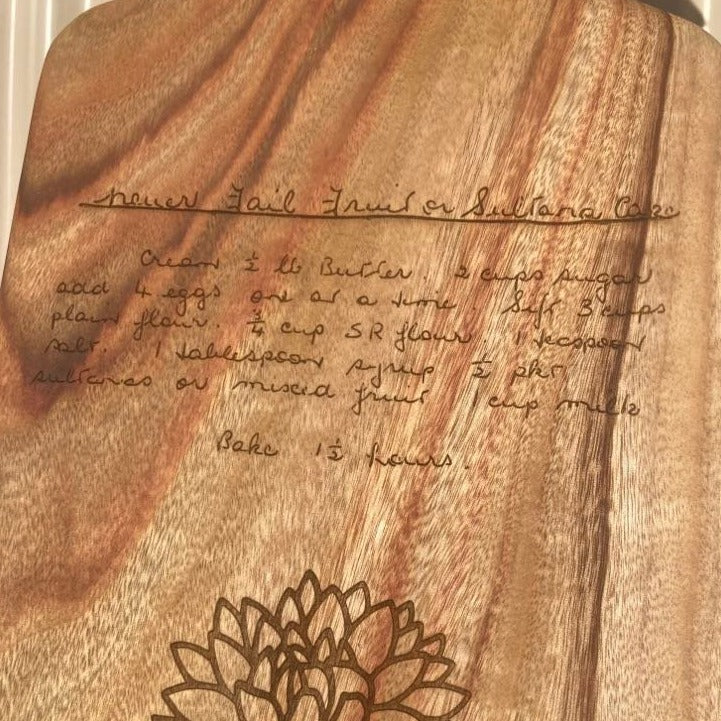 Never Fail Fruit or Sultana Cake
Cream ½ lb Butter. 2 cups sugar
add 4 eggs one at a time. Sift 3 cups
plain flour. ¾ cup SR flour. 1 teaspoon
salt. 1 tablespoon syrup ½ pkt
sultanas or mixed fruit 1 cup milk
Bake 1½ hours.